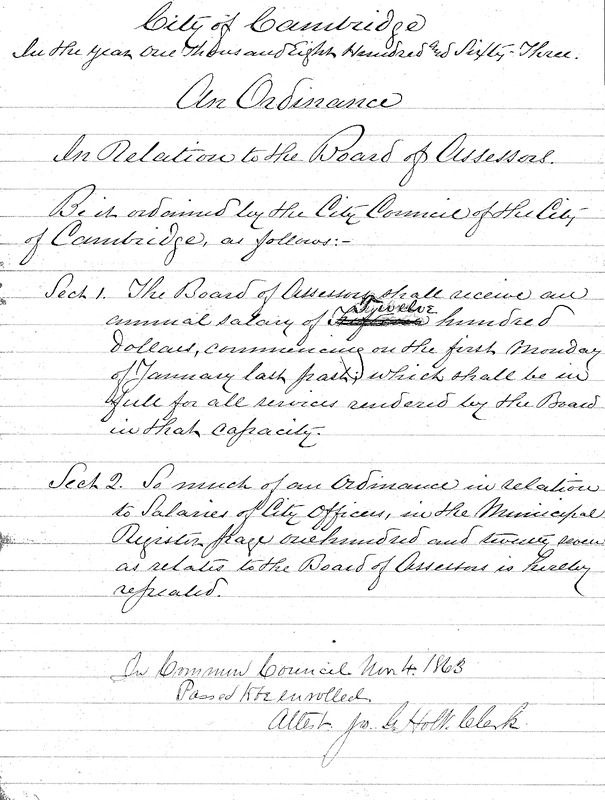 City of Cambridge
In the year One Thousand Eight Hundred and Sixty-Three.
An Ordinance
In Relation to the Board of Assessors.
Be it ordained by the City Council of the City
of Cambridge, as follows:-
Sect 1. The Board of Assessors shall receive an
Twelve
annual salary of hundred
Dollars, commencing on the first Monday
of January last past, which shall be in
full for all services rendered by the Board
in that capacity.
Sect 2. So much of an Ordinance in relation
to Salaries of City Officers, in the Municipal
Register, page one hundred and twenty seven
as relates to the Board of Assessors is hereby
repealed.
In Common Council Nov 4. 1863
Passed to be enrolled
Attest. Clerk.